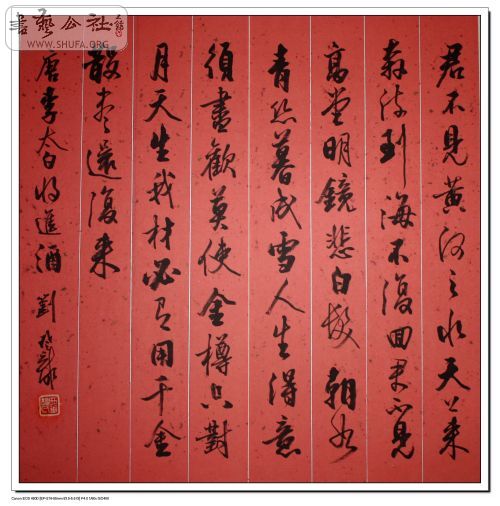 書藝公社
WWW.SHUFA.ORG
君不見黃河之水天上来
奔流到海不復回君不見
高堂明鏡悲白髮朝如
青丝暮成雪人生得意
須盡歡莫使金樽空對
月天生我材必有用千金
散盡還復来
唐李太白将進酒 劉
Canon EOS 400D